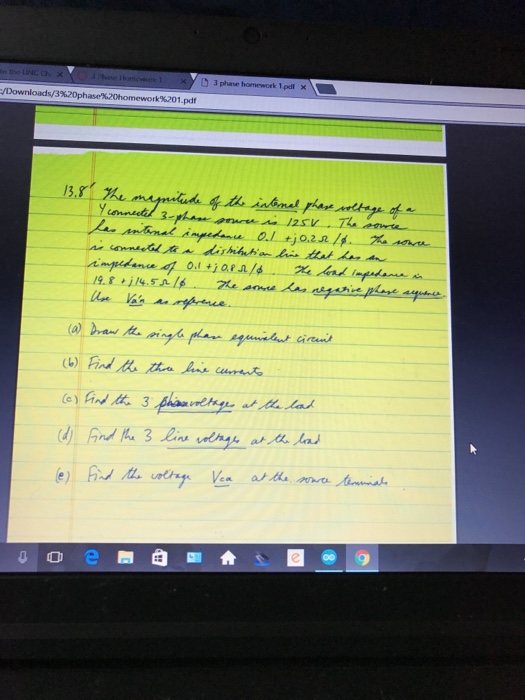 3 phase homework 1.pdf ×
/Downloads/3%20phase%20homework%201.pdf
13.8 The magnitude of the internal phase voltage of a
Y connected 3-phase source is 125V. The source
has internal impedance 0.1 + j0.2 Ω/ϕ. The source
is connected to a distribution line that has an
impedance of 0.1 + j0.8 Ω/ϕ. The load impedance is
19.8 + j14.5 Ω/ϕ. The source has negative phase sequence
Use Va'n as reference.
(a) Draw the single phase equivalent circuit
(b) Find the three line currents
(c) Find the 3 phase voltages at the load
(d) Find the 3 line voltages at the load
(e) Find the voltage Vca at the source terminals